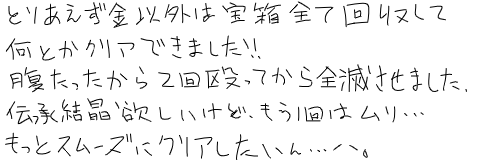 とりあえず金以外は宝箱全て回収して
何とかクリアできました!!
腹たったから2回殴ってから全滅させました.
伝承結晶欲しいけど、もう1回はムリ…
もっとスムーズにクリアしたいん…ハ。